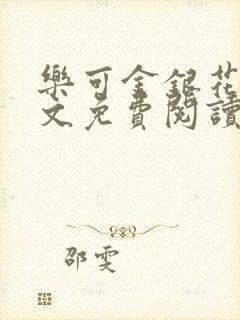 樂可金銀花
文免費閱讀
邵雯